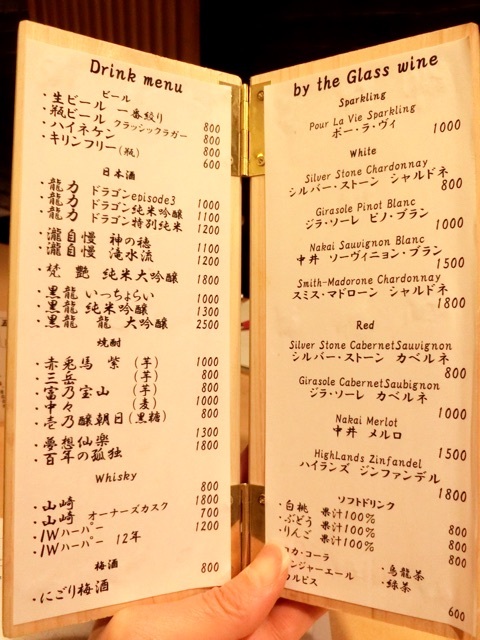 Drink menu
ビール
・生ビール 一番絞り 800
・瓶ビール クラッシックラガー 800
・ハイネケン 800
・キリンフリー(瓶) 600
日本酒
・龍力 ドラゴンepisode3 1000
・龍力 ドラゴン純米吟醸 1100
・龍力 ドラゴン特別純米 1200
・瀧自慢 神の穂 1100
・瀧自慢 滝水流 1200
・梵 艶 純米大吟醸 1800
・黒龍 いっちょらい 1000
・黒龍 純米吟醸 1300
・黒龍 龍 大吟醸 2500
焼酎
・赤兎馬 紫 (芋) 1000
・三岳 (芋) 800
・富乃宝山 (芋) 800
・中々 (麦) 1000
・壱乃醸朝日(黒糖) 800
・夢想仙楽 1300
・百年の孤独 1800
Whisky
・山崎 800
・山崎 オーナーズカスク 1800
・JWハーパー 700
・JWハーパー 12年 1200
梅酒
・にごり梅酒 800
by the Glass wine
Sparkling
Pour La Vie Sparkling
ポー・ラ・ヴィ 1000
White
Silver Stone Chardonnay
シルバー・ストーン シャルドネ
800
Girasole Pinot Blanc
ジラ・ソーレ ピノ・ブラン
1000
Nakai Sauvignon Blanc
中井 ソーヴィニョン・ブラン
1500
Smith-Madorone Chardonnay
スミス・マドローン シャルドネ
1800
Red
Silver Stone CabernetSauvignon
シルバー・ストーン カベルネ
800
Girasole CabernetSaubignon
ジラ・ソーレ カベルネ
1000
Nakai Merlot
中井 メルロ
1500
HighLands Zinfandel
ハイランズ ジンファンデル
1800
ソフトドリンク
・白桃 果汁100% 800
・ぶどう 果汁100% 800
・りんご 果汁100% 800
カ・コーラ ・烏龍茶
ンジャーエール ・緑茶
ルピス
600